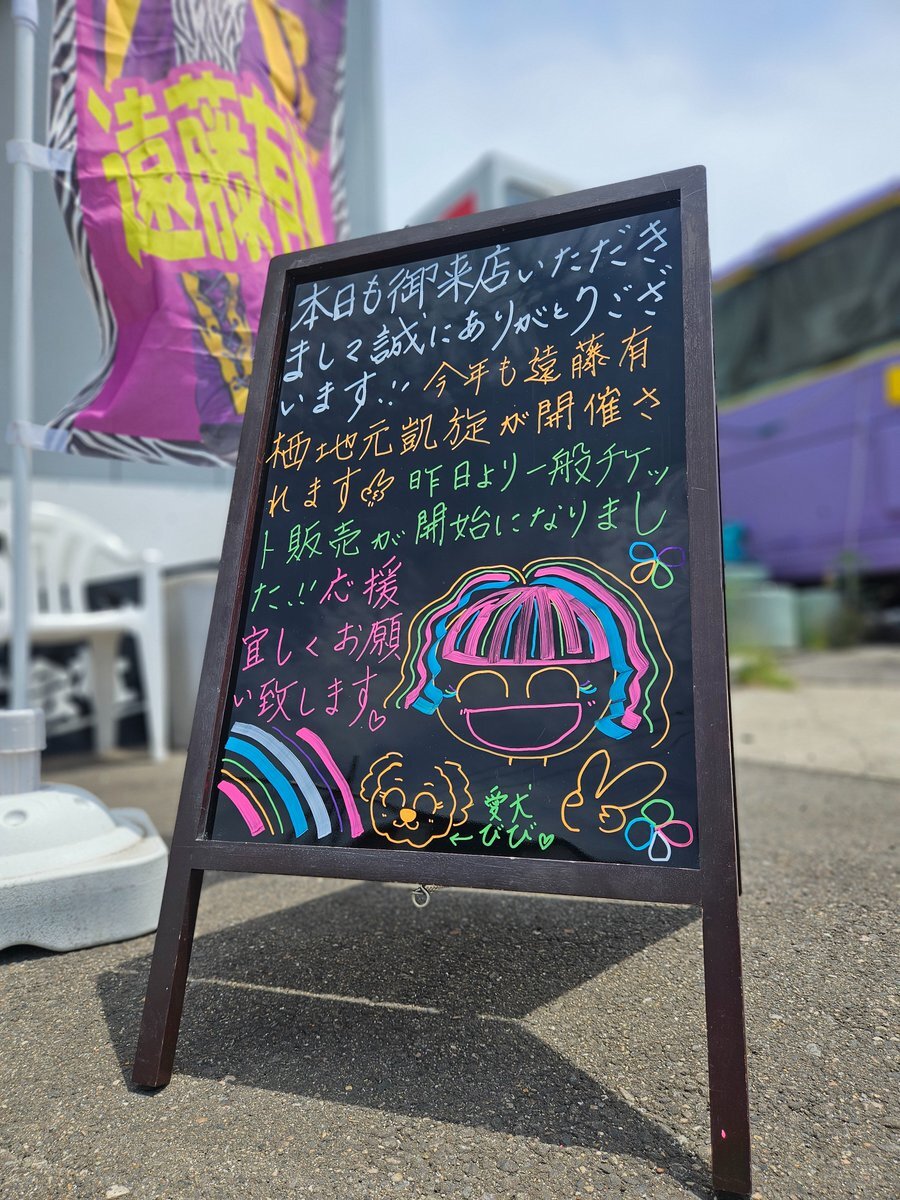 遠藤有
本日も御来店いただき
まして誠にありがとうござ
います!! 今年も遠藤有
栖地元凱旋が開催さ
れます 昨日より一般チケッ
ト販売が開始になりまし
た!!! 応援
宜しくお願
い致します♡
愛犬
←びび♡